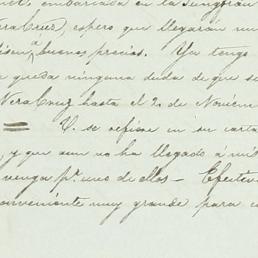 embarcada en la
Vera Cruz, espero que llegarán
buenos precios. Ya tengo
queda ninguna duda de que se
Vera Cruz hasta el 2. de
V. se refiere en su carta
, y que aun no ha llegado á
venga pr. uno de ellos —
conveniente muy grande para